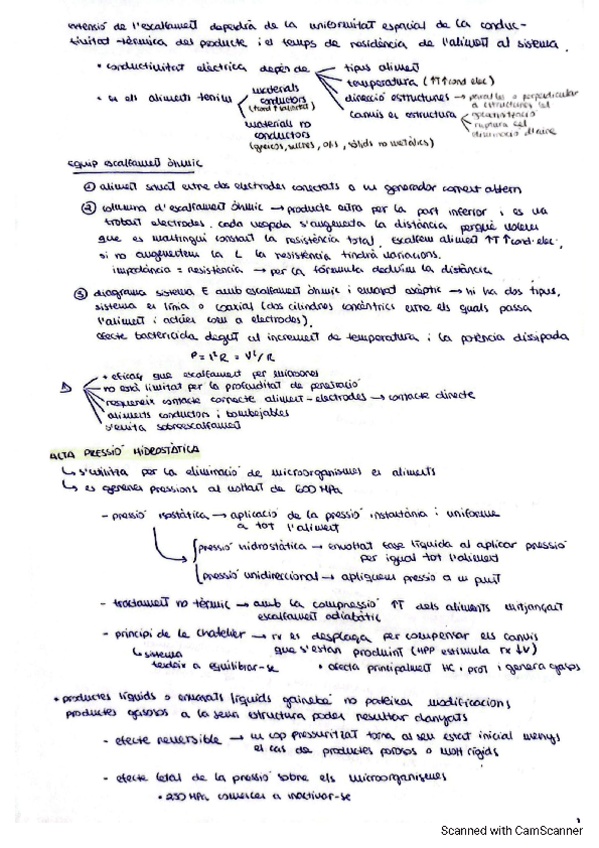 extensió de l'escalfament dependrà de la uniformitat espacial de la conduc-
tivitat tèrmica del producte i el temps de residència de l'aliment al sistema.
• conductivitat elèctrica depèn de
tipus aliment
temperatura (↑↑cond elec)
direcció estructures → paral·lel o perpendicular
a estructures
canvis en estructura
gelatinització
ruptura cel
eliminació d'aire
• en els aliments tenim
materials
conductors
materials no
conductors
(greixos, sucres, olis, sòlids no metàl·lics)
Equip escalfament òhmic
① aliment situat entre dos elèctrodes conectats a un generador corrent altern
② columna d'escalfament òhmic → producte entra per la part inferior i es va
trobant electrodes. cada vegada s'augmenta la distància perquè volem
que es mantingui constant la resistència total. escalfem aliment ↑↑ ↑cond·elec,
si no augmentem la L la resistència tindrà variacions.
impedància = resistència → per la fórmula deduïm la distància
③ diagrama sistema E amb escalfament òhmic i envasat asèptic → hi ha dos tipus,
sistema en línia o coaxial (dos cilindres concèntrics entre els quals passa
l'aliment i actuen com a electrodes).
efecte bactericida degut al increment de temperatura i la potència dissipada
P = I²R = V²/R
+ eficaç que escalfament per microones
no està limitat per la profunditat de penetració
requereix contacte correcte aliment-electrodes → contacte directe
aliments conductors i bombejables
s'evita sobreescalfament
ALTA PRESSIÓ HIDROSTÀTICA
↳ s'utilitza per la eliminació de microorganismes en aliments
↳ es generen pressions al voltant de 600 MPa
- pressió isostàtica → aplicació de la pressió instantània i uniforme
a tot l'aliment
pressió hidrostàtica → envoltat fase líquida al aplicar pressió
per igual tot l'aliment
pressió unidireccional → apliquem pressió a un punt
- tractament no tèrmic → amb la compressió ↑T dels aliments mitjançant
escalfament adiabàtic
- principi de le chatelier → rx es desplaça per compensar els canvis
que s'estan produint (HPP estimula rx ↓V)
↳ sistema
tendeix a equilibrar-se
• afecta principalment HC i prot i genera gasos
• productes líquids o envasats líquids gairebé no pateixen modificacions
productes gasosos a la seva estructura poden resultar danyats
- efecte reversible → un cop pressuritzat torna al seu estat inicial menys
el cas de productes porosos o molt rígids
- efecte letal de la pressió sobre els microorganismes
• 250 MPa comencen a inactivar-se
Scanned with CamScanner